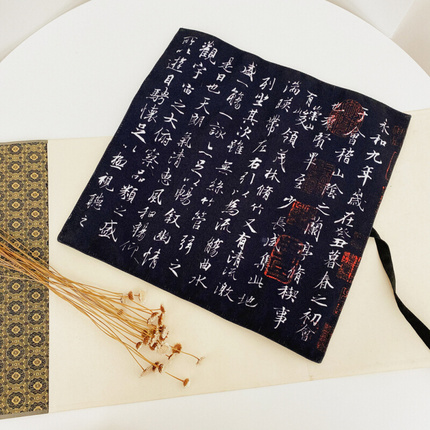 永和九年歲在癸丑暮春之初會
于會稽山陰之蘭亭脩稧事
也群賢畢至少長咸集此地
有崇山峻領茂林脩竹又有清流激
湍映帶左右引以為流觴曲水
列坐其次雖無絲竹管弦之
盛一觴一詠亦足以暢敘幽情
是日也天朗氣清惠風和暢仰
觀宇宙之大俯察品類之盛
所以遊目騁懷足以極視聽之